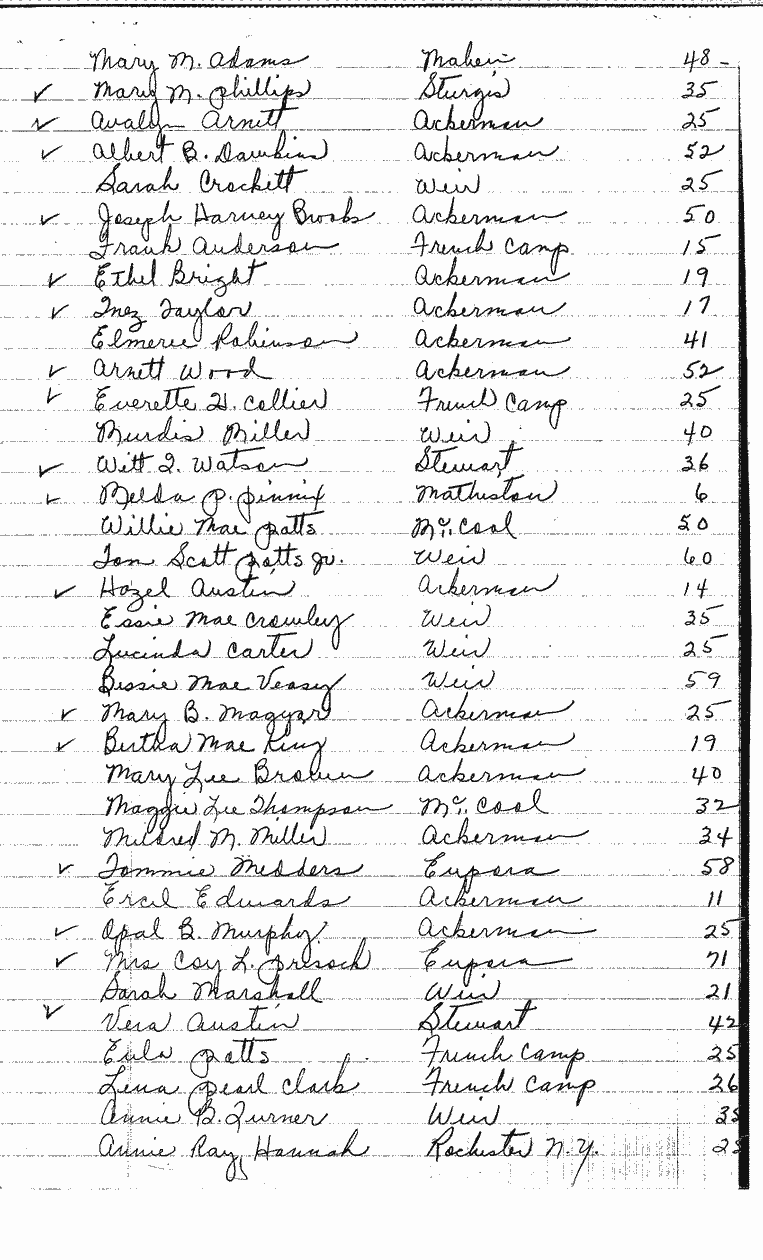 Mary M. Adams Maben 48
✓ Mary M. Phillips Sturgis 35
✓ Avalyn Arnett Ackerman 25
✓ Albert B. Dawkins Ackerman 52
Sarah Crockett Weir 25
✓ Joseph Harvey Brooks Ackerman 50
Frank Anderson French Camp 15
✓ Ethel Bright Ackerman 19
✓ Inez Taylor Ackerman 17
Elmeree Robinson Ackerman 41
✓ Arnett Wood Ackerman 52
✓ Everette H. Collier French Camp 25
Murdis Miller Weir 40
✓ Witt I. Watson Stewart 36
✓ Melda P. Pinnix Mathiston 6
Willie Mae Potts Mc. Cool 50
Tom Scott Potts Jr. Weir 60
✓ Hazel Austin Ackerman 14
Essie Mae Crowley Weir 35
Lucinda Carter Weir 25
Bessie Mae Veasey Weir 59
✓ Mary B. Magyar Ackerman 25
✓ Bertha Mae King Ackerman 19
Mary Lee Brown Ackerman 40
Maggie Lee Thompson Mc. Cool 32
Mildred M. Miller Ackerman 34
✓ Tommie Medders Eupora 58
Ercil Edwards Ackerman 11
✓ Opal B. Murphy Ackerman 25
✓ Mrs Coy L. Eupora 71
Sarah Marshall Weir 21
✓ Vera Austin Stewart 42
Eula Potts French Camp 25
Lena Pearl Clark French Camp 26
Annie B. Turner Weir 35
Annie Ray Hannah Rochester N.Y.